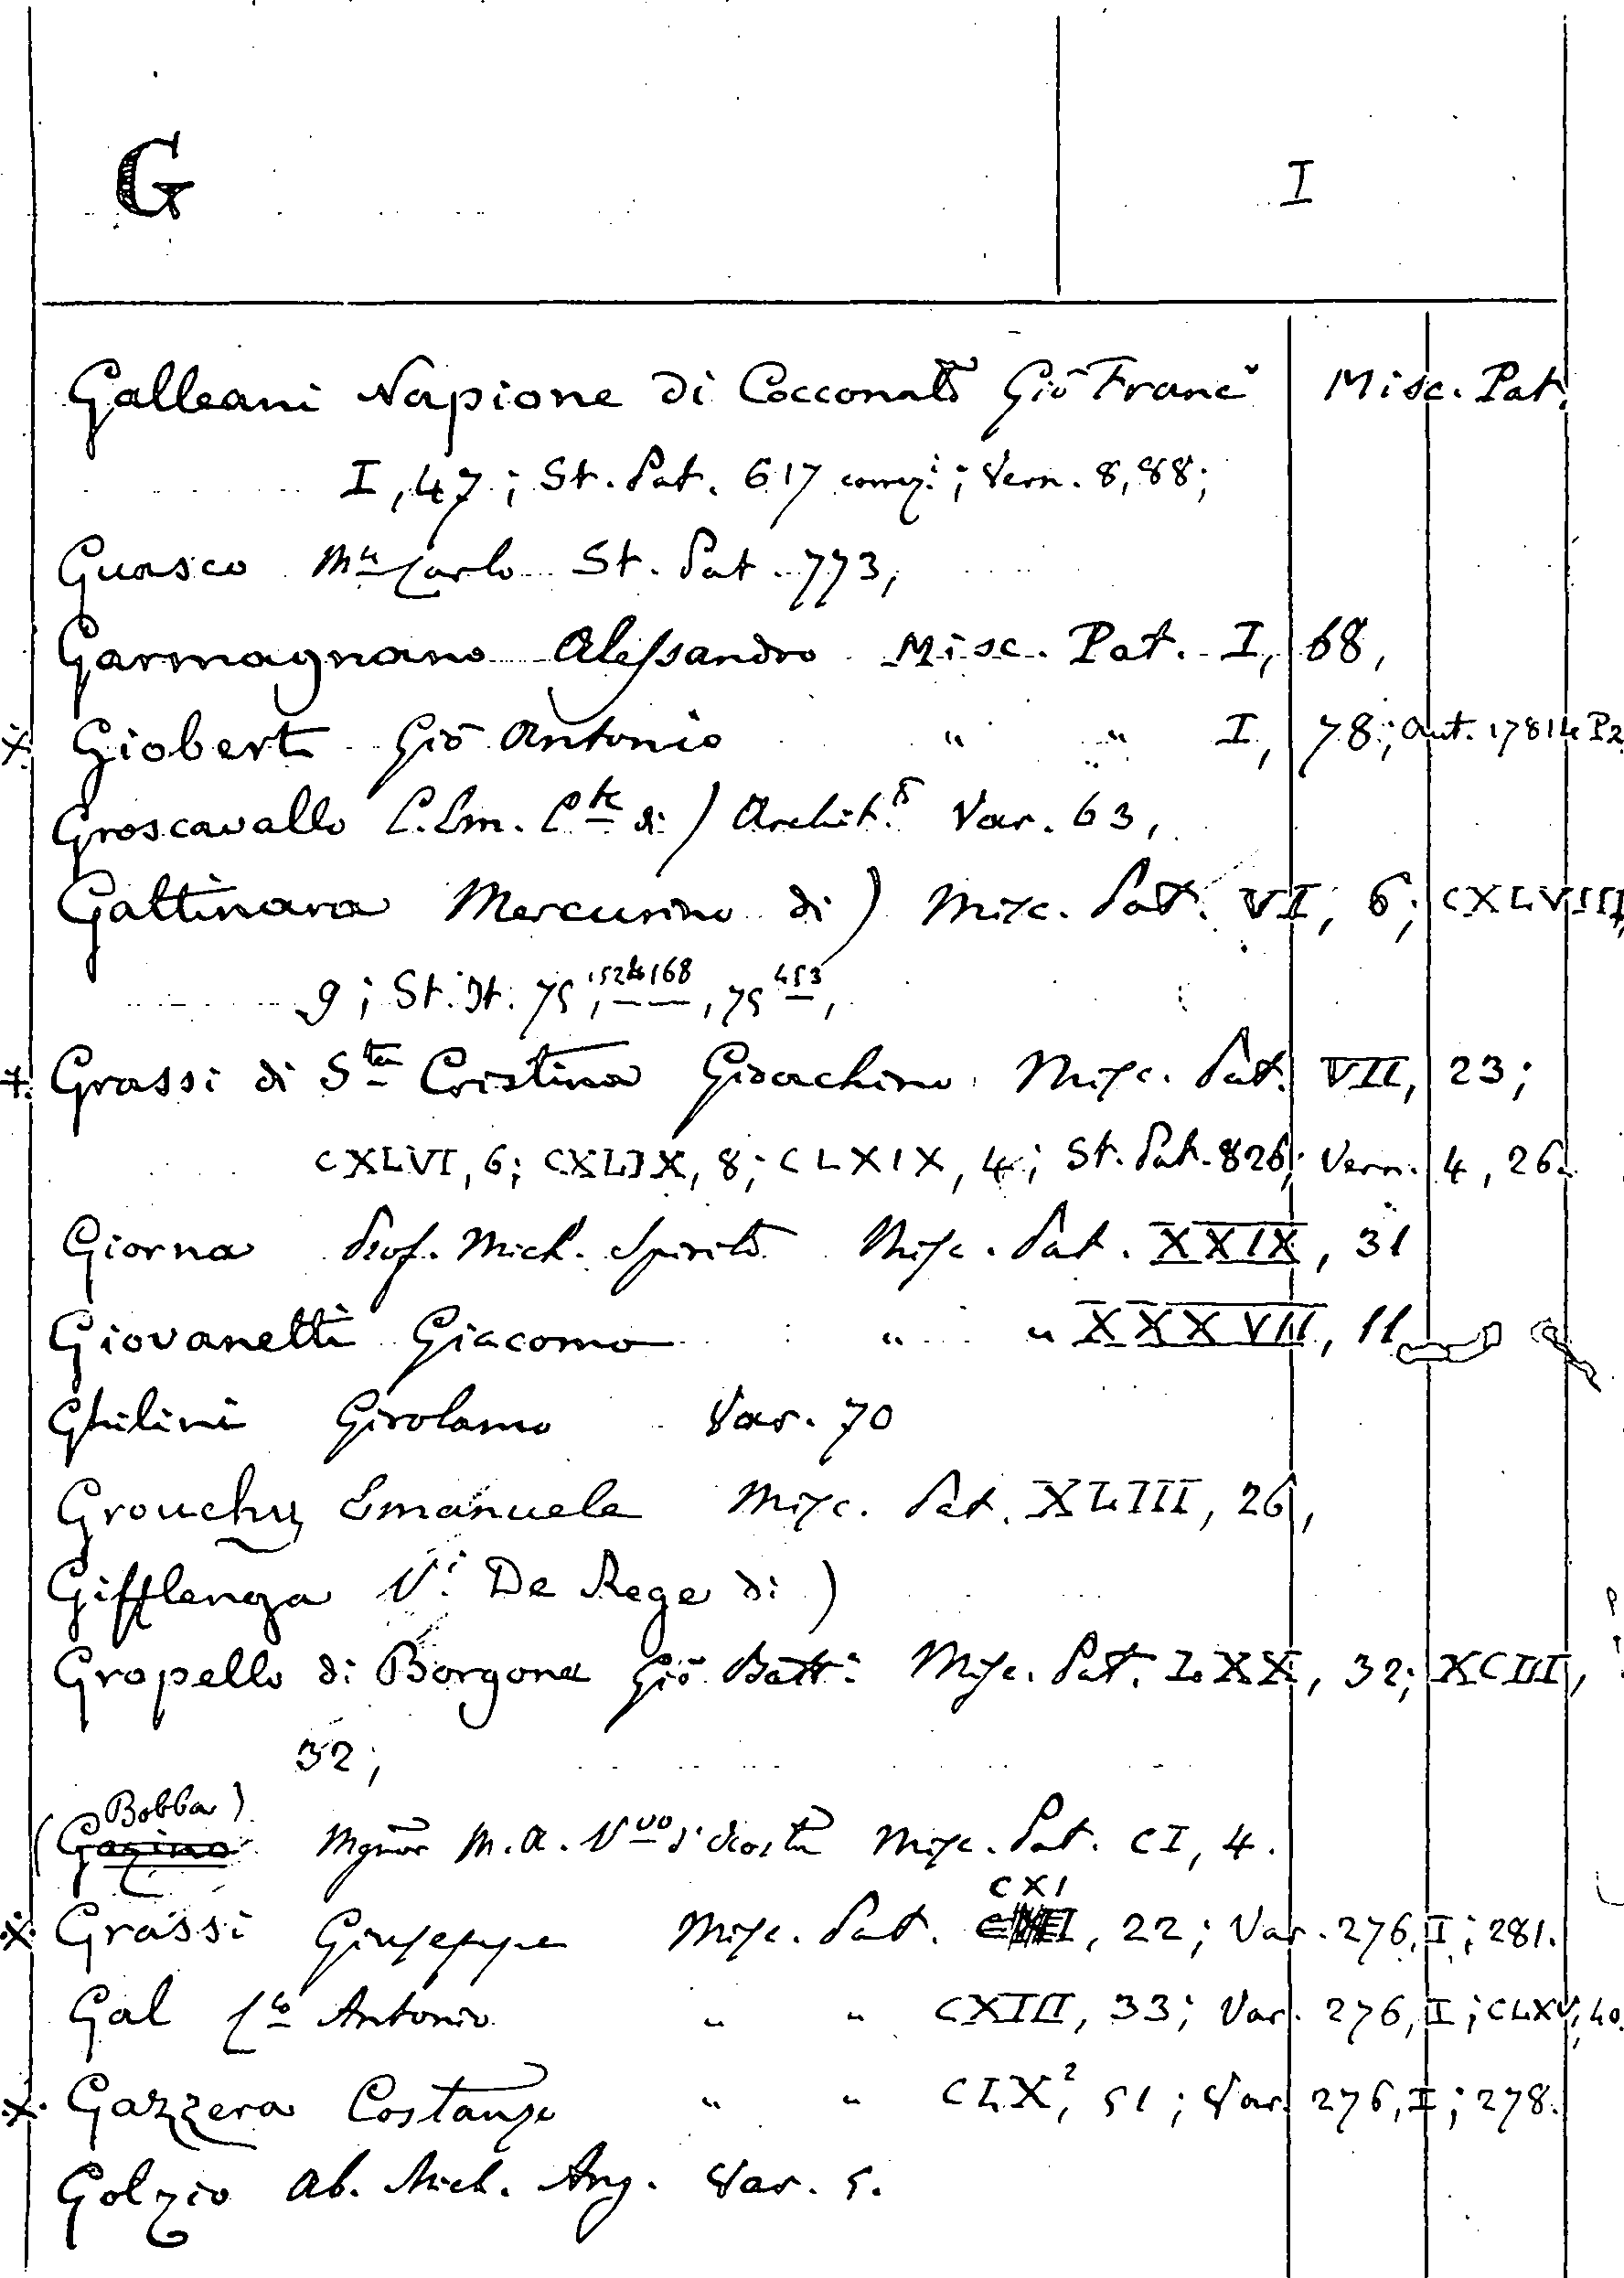 G I
Galleani Napione di Cocconato Giô Franc° Misc. Pat.
I, 47; St. Pat. 617 ; Vern. 8, 88;
Guasco Mse Carlo St. Pat. 773,
Garmagnano Alessandro Misc. Pat. I, 68,
X Giobert Giô Antonio " " I, 78; Aut. 17814 P2
Groscavallo C. Em. Cte di) Archit.o Var. 63,
Gattinara Mercurino di) Misc. Pat. VI, 6; CXLVIII,
9; St. It. 75, 152 168, 75 453,
X Grassi di Sta Cristina Gioachino Misc. Pat. VII, 23;
CXLVI, 6; CXLIX, 8; CLXIX, 4; St. Pat. 826; Vern. 4, 26.
Giorna Prof. Mich. Spirito Misc. Pat. XXIX, 31
Giovanetti Giacomo " " XXXVII, 11
Ghilini Girolamo Var. 70
Grouchy Emanuele Misc. Pat. XLIII, 26,
Gifflenga V. De Rege di)
Gropello di Borgone Giô Batt: Misc. Pat. LXX, 32; XCIII,
32;
Bobba)
(Gazino Mgnor M. A. Vvo d'Aosta Misc. Pat. CI, 4.
CXI
X Grassi Giuseppe Misc. Pat. , 22; Var. 276, II; 281.
Gal Antonio " " CXIII, 33; Var. 276, I; CLXV, 40.
X Gazzera Costanzo " " CLX², 51; Var. 276, I; 278.
Golzio Ab. Mich. Ang. Var. 5.